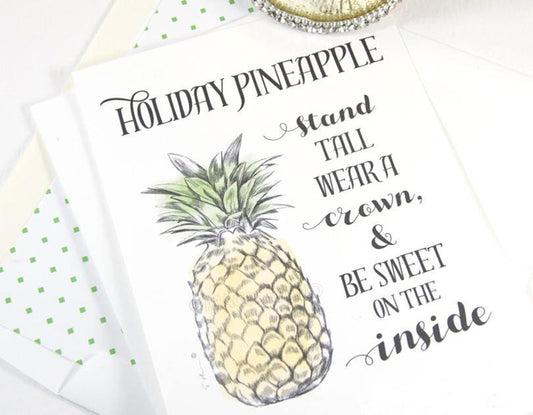 HOLIDAY PINEAPPLE
stand
TALL
WEAR A
crown,
&
BE SWEET
ON THE
inside